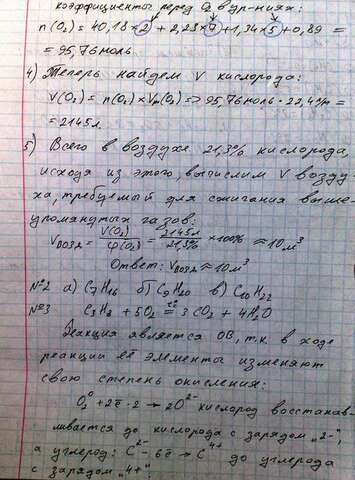 коэффициенты перед O₂ в ур-ниях:
n(O₂) = 40,18×2 + 2,23×7 + 1,34×5 + 0,89 =
= 95,76 моль.
4) Теперь найдем V кислорода:
V(O₂) = n(O₂) × Vm(O₂) => 95,76 моль · 22,4 =
= 2145 л.
5) Всего в воздухе 21,3% кислорода,
исходя из этого, вычислим V возду-
ха, требуемый для сжигания выше-
упомянутых газов:
Vвозд = V(O₂)/φ(O₂) = 2145л/21,3% × 100% ≈ 10 м³
Ответ: Vвозд ≈ 10 м³
№2 а) C₇H₁₆ б) C₉H₂₀ в) C₁₀H₂₂
№3 C₃H₈ + 5O₂ =t° 3CO₂ + 4H₂O
Реакция является ОВ, т.к. в ходе
реакции её элементы изменяют
свою степень окисления:
O₂⁰ + 2ē · 2 → 2O²⁻ кислород восстанав-
ливается до кислорода с зарядом „2-",
а углерод: C²⁻ - 6ē → C⁴⁺ до углерода
с зарядом „4+".